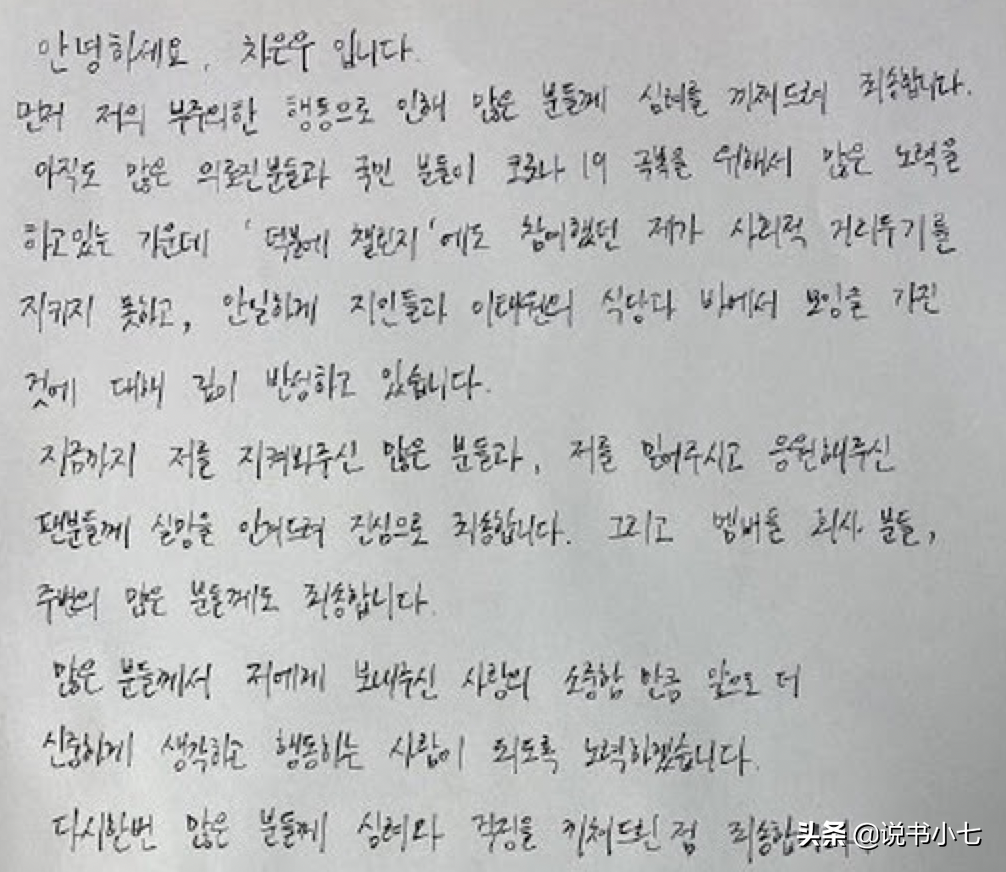 안녕하세요, 차은우 입니다.
먼저 저의 부주의한 행동으로 인해 많은 분들께 심려를 끼쳐드려 죄송합니다.
아직도 많은 의료진분들과 국민 분들이 코로나 19 극복을 위해서 많은 노력을
하고있는 가운데 '덕분에 챌린지'에도 참여했던 제가 사회적 거리두기를
지키지 못하고, 안일하게 지인들과 이태원의 식당과 바에서 모임을 가진
것에 대해 깊이 반성하고 있습니다.
지금까지 저를 지켜봐주신 많은 분들과, 저를 믿어주시고 응원해주신
팬분들께 실망을 안겨드려 진심으로 죄송합니다. 그리고 멤버들 회사 분들,
주변의 많은 분들께도 죄송합니다.
많은 분들께서 저에게 보내주신 사랑의 소중함 만큼 앞으로 더
신중하게 생각하고 행동하는 사람이 되도록 노력하겠습니다.
다시한번 많은 분들께 심려와 걱정을 끼쳐드린 점 죄송합
头条 @说书小七